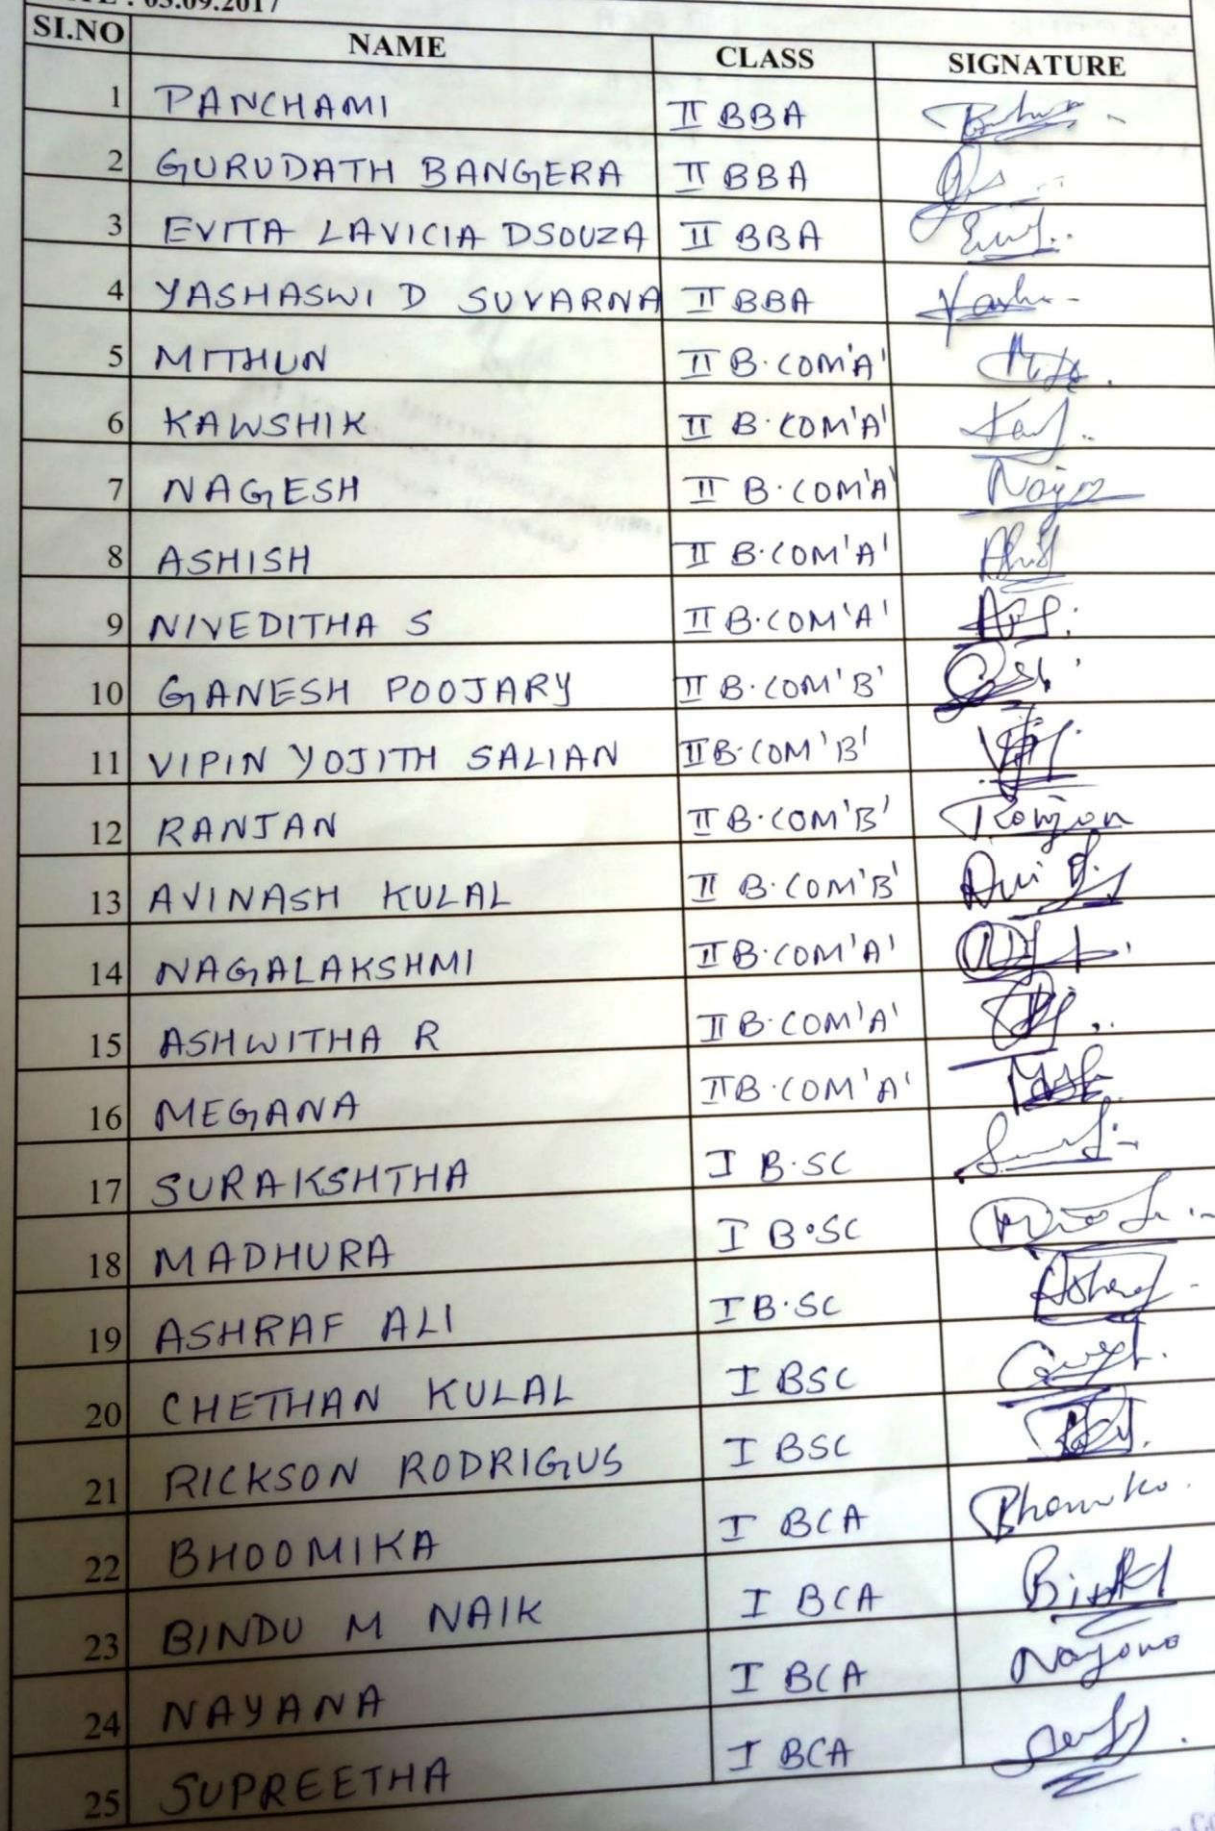 : 05.09.2017
SI.NO NAME CLASS SIGNATURE
1 PANCHAMI II BBA
2 GURUDATH BANGERA II BBA
3 EVITA LAVICIA DSOUZA II BBA
4 YASHASWI D SUVARNA II BBA
5 MITHUN II B.COM'A'
6 KAWSHIK II B.COM'A'
7 NAGESH II B.COM'A'
8 ASHISH II B.COM'A'
9 NIVEDITHA S II B.COM'A'
10 GANESH POOJARY II B.COM'B'
11 VIPIN YOJITH SALIAN II B.COM'B'
12 RANJAN II B.COM'B' Ranjan
13 AVINASH KULAL II B.COM'B'
14 NAGALAKSHMI II B.COM'A'
15 ASHWITHA R II B.COM'A'
16 MEGANA II B.COM'A'
17 SURAKSHTHA I B.SC
18 MADHURA I B.SC
19 ASHRAF ALI I B.SC
20 CHETHAN KULAL I BSC
21 RICKSON RODRIGUS I BSC
22 BHOOMIKA I BCA Bhomika
23 BINDU M NAIK I BCA
24 NAYANA I BCA Nayana
25 SUPREETHA I BCA